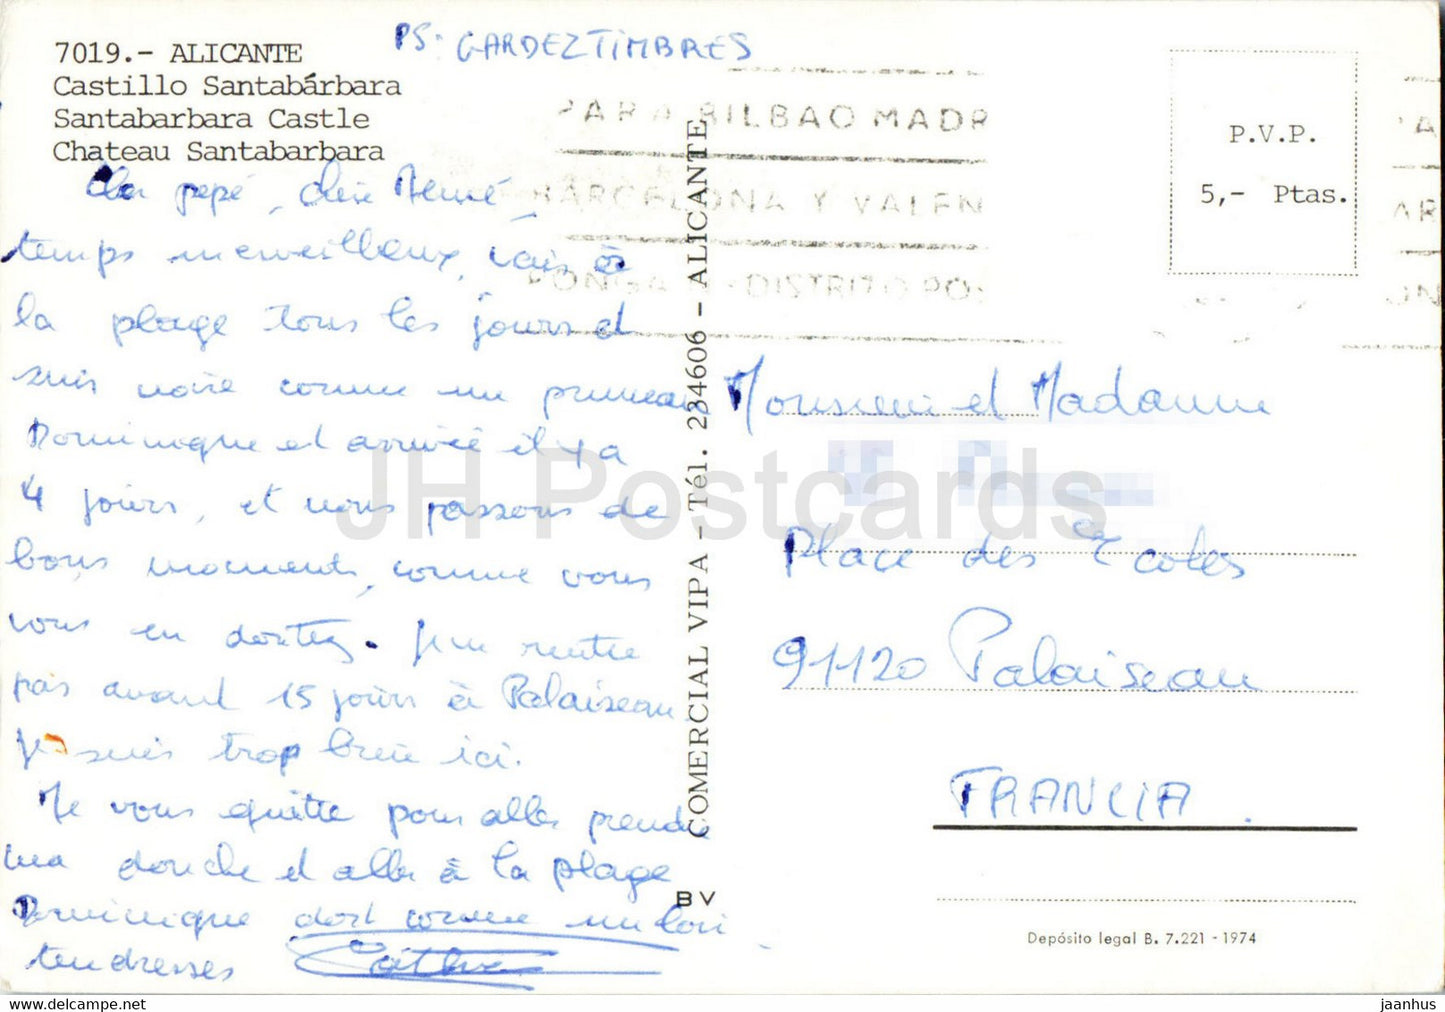 PS: GARDEZ TIMBRES
7019.- ALICANTE
Castillo Santabárbara
Santabarbara Castle
Chateau Santabarbara
pepé, chère Mémé,
temps merveilleux, vais à
la plage tous les jours et
suis noire comme un pruneau
Dominique et arrivé il y a
4 jours, et nous passons de
bons moments, comme vous
vous en doutez. Je ne rentre
pas avant 15 jours à Palaiseau
Je suis trop bien ici.
Je vous quitte pour aller prendre
ma douche et aller à la plage
Dominique dort comme un loir
tendresses
PARA BILBAO MADR
BARCELONA Y VALEN
PONGA DISTRITO POS
COMERCIAL VIPA - Tél. 234606 - ALICANTE
BV
P.V.P.
5,- Ptas.
Monsieur et Madame
Place des Ecoles
91120 Palaiseau
FRANCIA.
Depósito legal B. 7.221 - 1974
JH Postcards
jaanhus